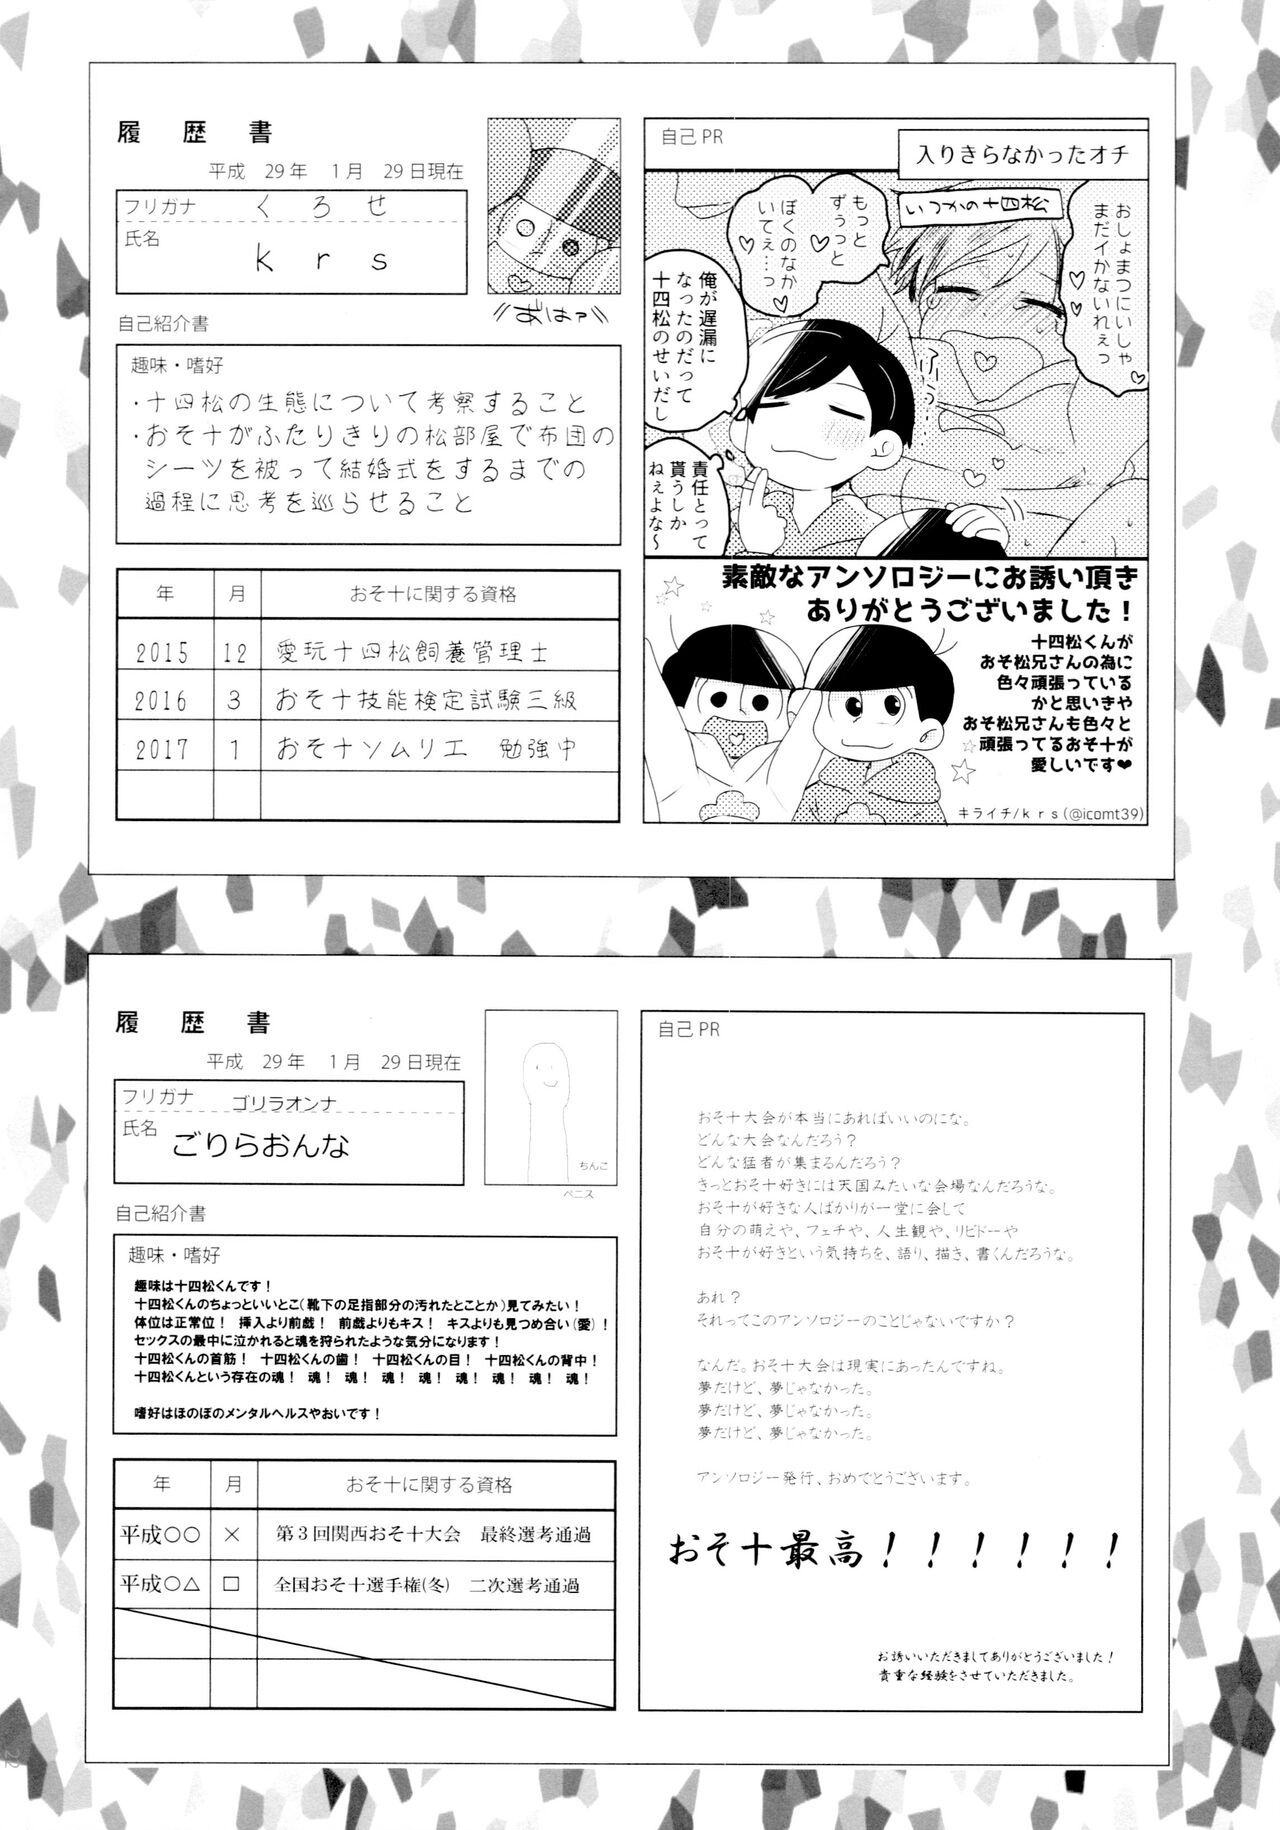 履歴書
平成 29年 1月 29日現在
フリガナ くろせ
氏名
krs
あはァ
自己紹介書
趣味・嗜好
・十四松の生態について考察すること
・おそ十がふたりきりの松部屋で布団の
シーツを被って結婚式をするまでの
過程に思考を巡らせること
年 月 おそ十に関する資格
2015 12 愛玩十四松飼養管理士
2016 3 おそ十技能検定試験三級
2017 1 おそ十ソムリエ 勉強中
自己PR
入りきらなかったオチ
いつかの十四松
おしょまつにいしゃ
まだイかないれぇっ
もっと
ずぅっと
ぼくのなか
いてぇ…っ
ふぅ…
俺が遅漏に
なったのだって
十四松のせいだし
責任とって
貰うしか
ねぇよな～
素敵なアンソロジーにお誘い頂き
ありがとうございました！
十四松くんが
おそ松兄さんの為に
色々頑張っている
かと思いきや
おそ松兄さんも色々と
頑張ってるおそ十が
愛しいです❤
キライチ/krs(@icomt39)
履歴書
平成 29年 1月 29日現在
フリガナ ゴリラオンナ
氏名
ごりらおんな
ちんこ
ペニス
自己紹介書
趣味・嗜好
趣味は十四松くんです！
十四松くんのちょっといいとこ(靴下の足指部分の汚れたとことか)見てみたい！
体位は正常位！ 挿入より前戯！ 前戯よりもキス！ キスよりも見つめ合い(愛)！
セックスの最中に泣かれると魂を狩られたような気分になります！
十四松くんの首筋！ 十四松くんの歯！ 十四松くんの目！ 十四松くんの背中！
十四松くんという存在の魂！ 魂！ 魂！ 魂！ 魂！ 魂！ 魂！ 魂！ 魂！
嗜好はほのぼのメンタルヘルスやおいです！
年 月 おそ十に関する資格
平成○○ × 第３回関西おそ十大会 最終選考通過
平成○△ □ 全国おそ十選手権(冬) 二次選考通過
自己PR
おそ十大会が本当にあればいいのにな。
どんな大会なんだろう？
どんな猛者が集まるんだろう？
きっとおそ十好きには天国みたいな会場なんだろうな。
おそ十が好きな人ばかりが一堂に会して
自分の萌えや、フェチや、人生観や、リビドーや
おそ十が好きという気持ちを、語り、描き、書くんだろうな。
あれ？
それってこのアンソロジーのことじゃないですか？
なんだ。おそ十大会は現実にあったんですね。
夢だけど、夢じゃなかった。
夢だけど、夢じゃなかった。
夢だけど、夢じゃなかった。
アンソロジー発行、おめでとうございます。
おそ十最高！！！！！！
お誘いいただきましてありがとうございました！
貴重な経験をさせていただきました。